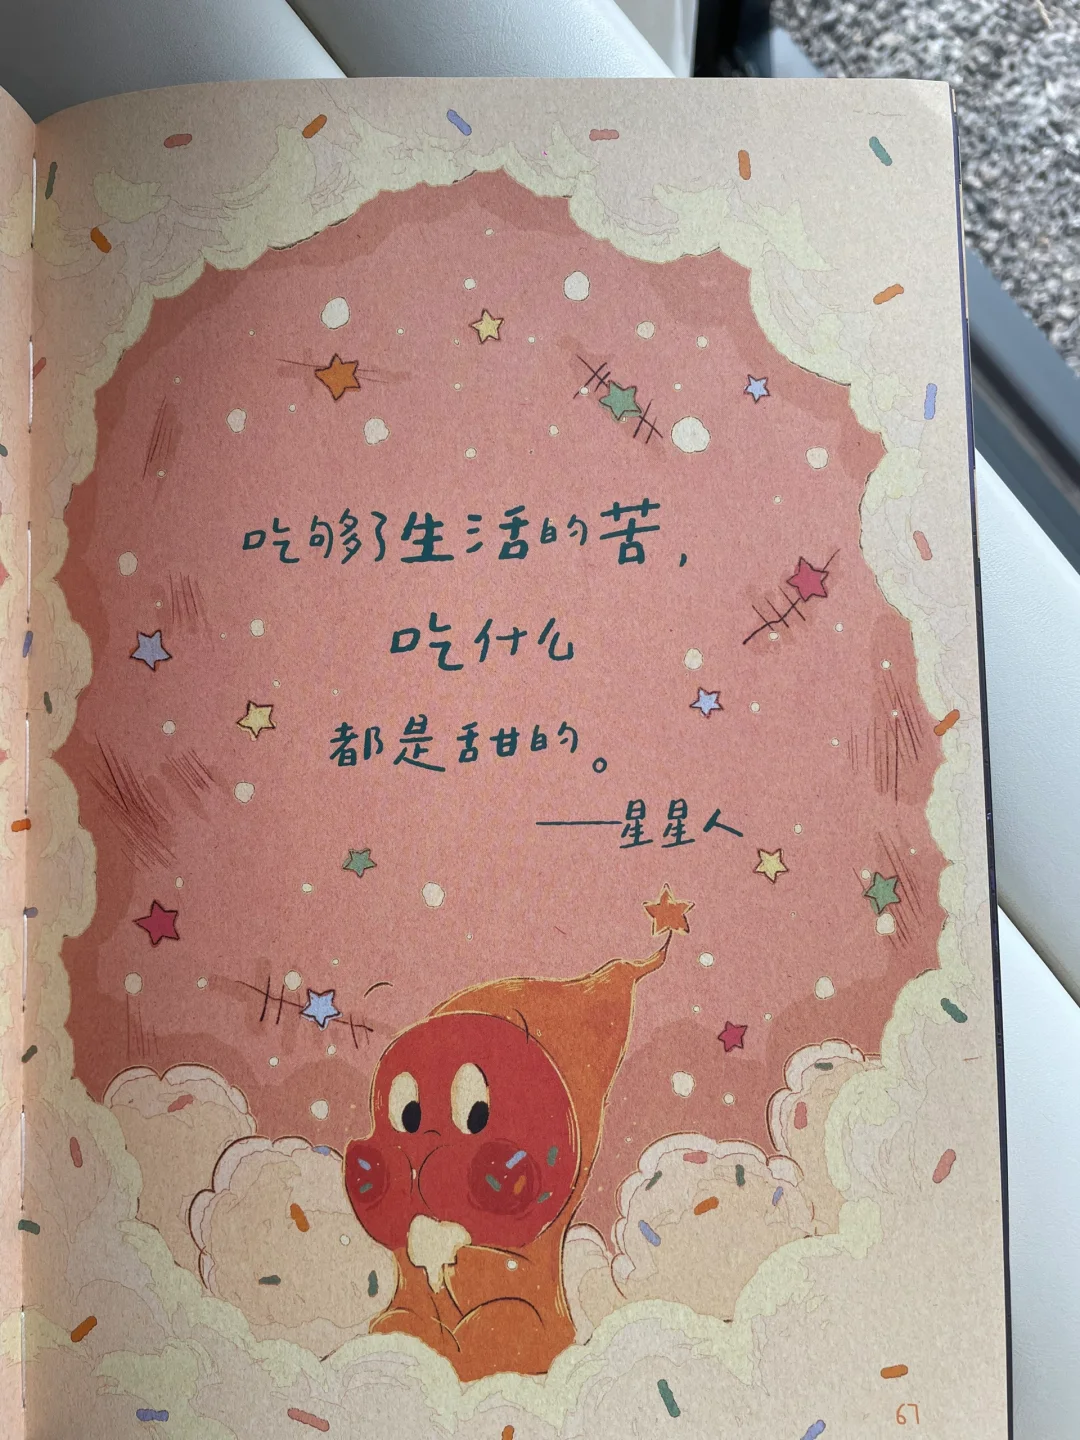 吃够了生活的苦，
吃什么
都是甜的。
——星星人
67